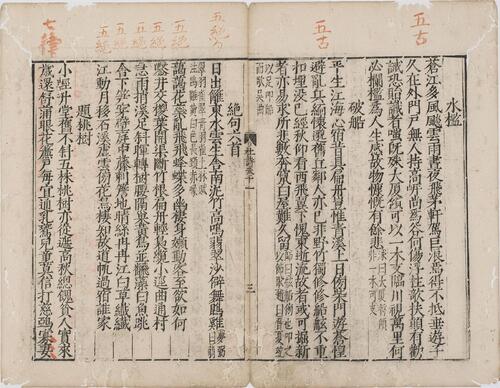 五古
水檻
蒼江多風飈雲雨晝夜飛茅軒駕巨浪焉得不低垂遊子
久在外門戶無人持高岸尚為谷何傷浮柱欹扶顛有勸
誡恐貽識者嗤既殊大廈傾可以一木支臨川視萬里何
必欄檻為人生感故物慷慨有餘悲
洙曰大廈將顛
非一木可支
五古
破船
平生江海心宿昔具扁舟豈惟青溪上日傍柴門遊蒼惶
避亂兵緬懷邈舊丘鄰人亦已非野竹獨修修船舷不重
扣埋沒已經秋仰看西飛翼下愧東逝流故者或可掘新
者亦易求所悲數奔竄白屋難久留
三
絕句六首
五絕
日出籬東水雲生舍南泥竹高鳴翡翠沙僻舞鵾雞
五絕
藹藹花蘂亂飛飛蜂蝶多幽棲身懶動客至欲如何
五絕
鑿井交椶葉開渠斷竹根扁舟輕裊纜小徑曲通村
五絕
急雨捎溪足斜暉轉樹腰隔巢黃鳥並翻藻白魚跳
五絕
舍下筍穿壁庭中藤刺簷地晴絲冉冉江白草纖纖
五絕
江動月移石溪虛雲傍花鳥棲知故道帆過宿誰家
題桃樹
七律
小徑升堂舊不斜五株桃樹亦從遮高秋總餽貧人實來
歲還舒滿眼花簾戶每宜通乳鷰兒童莫信打慈鴉寡妻